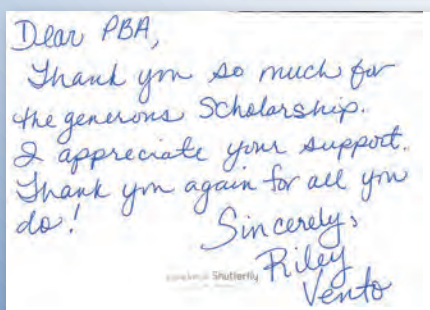 Dear PBA,
Thank you so much for
the generous Scholarship.
I appreciate your support.
Thank you again for all you
do!
Sincerely,
Shutterfly
Riley
Vento